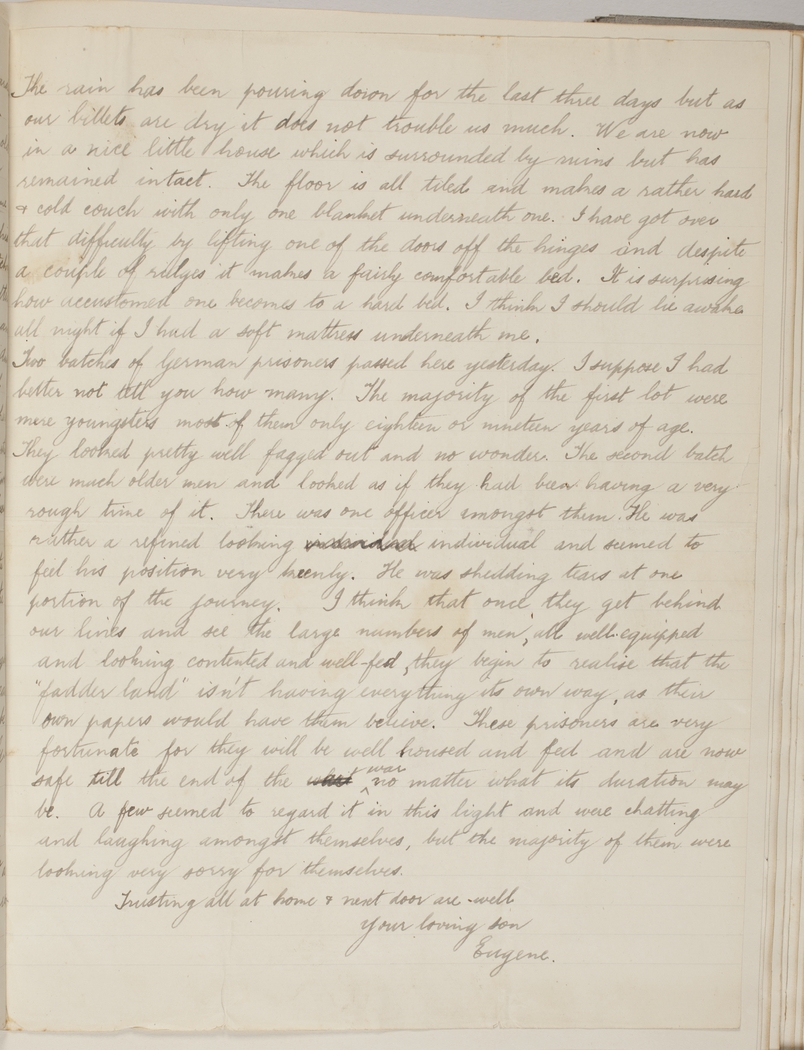 The rain has been pouring down for the last three days but as
our billets are dry it does not trouble us much. We are now
in a nice little house which is surrounded by ruins but has
remained intact. The floor is all tiled and makes a rather hard
& cold couch with only one blanket underneath one. I have got over
that difficulty by lifting one of the doors off the hinges and despite
a couple of ridges it makes a fairly comfortable bed. It is surprising
how accustomed one becomes to a hard bed. I think I should lie awake
all night if I had a soft mattress underneath me.
Two batches of German prisoners passed here yesterday. I suppose I had
better not tell you how many. The majority of the first lot were
mere youngsters most of them only eighteen or nineteen years of age.
They looked pretty well fagged out and no wonder. The second batch
were much older men and looked as if they had been having a very
rough time of it. There was one officer amongst them. He was
rather a refined looking individual and seemed to
feel his position very keenly. He was shedding tears at one
portion of the journey. I think that once they get behind
our lines and see the large numbers of men, all well equipped
and looking contented and well-fed, they begin to realise that the
"fadder land" isn't having everything its own way, as their
own papers would have them believe. These prisoners are very
fortunate for they will be well housed and fed and are now
safe till the end of the war no matter what its duration may
be. A few seemed to regard it in this light and were chatting
and laughing amongst themselves, but the majority of them were
looking very sorry for themselves.
Trusting all at home & next door are well
Your loving son
Eugene.